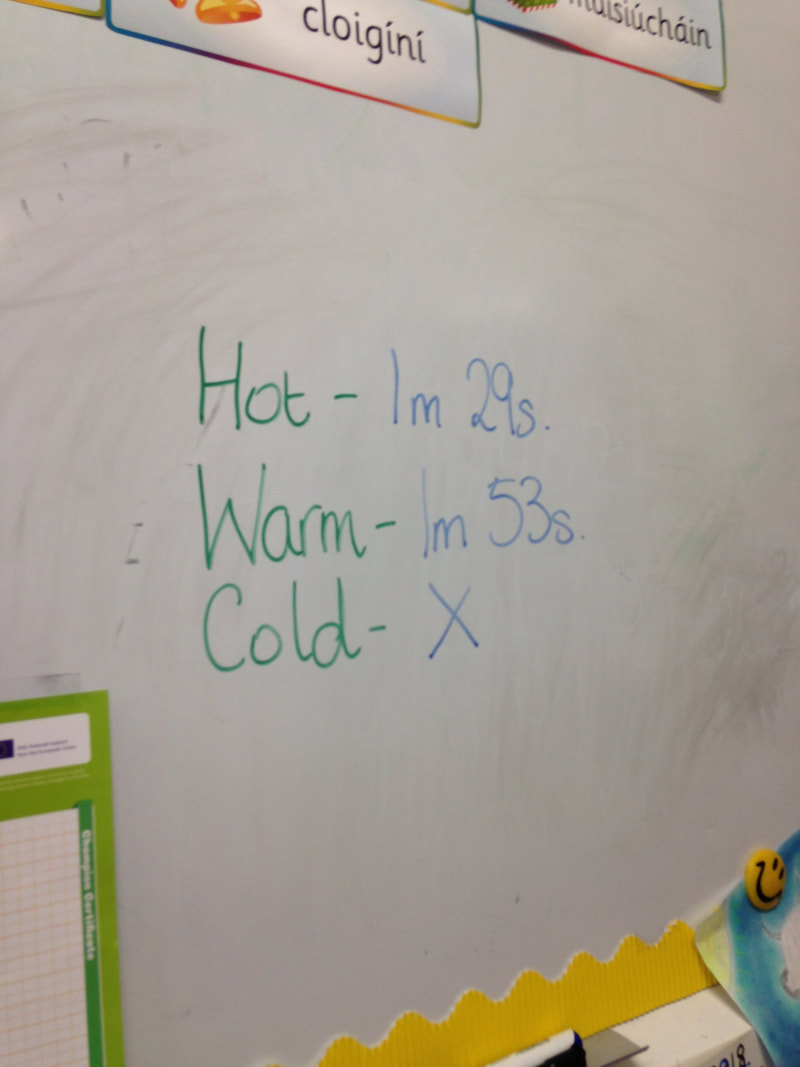 cloigíní
maisiúcháin
Hot - 1m 29s.
Warm - 1m 53s.
Cold - X
Champion Certificate